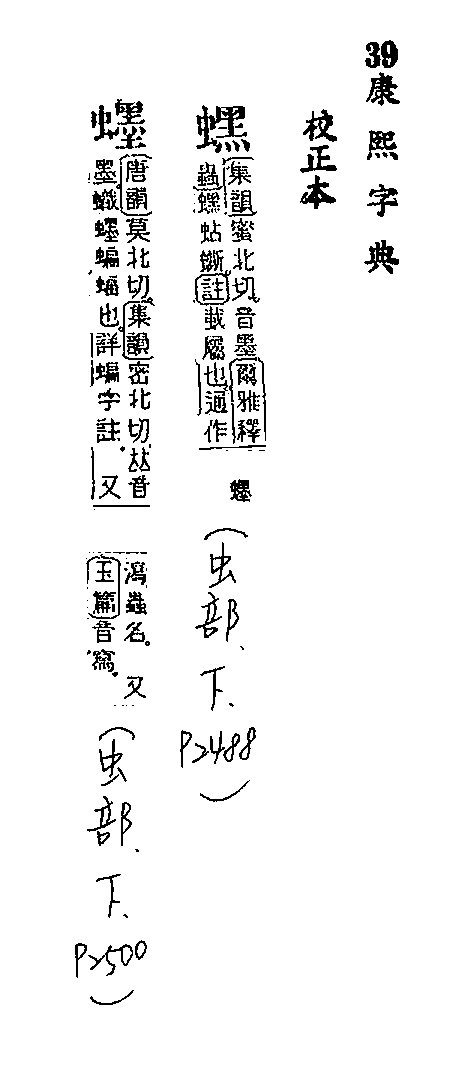 39康熙字典
校正本
蟔
集韻蜜北切音墨爾雅釋
蟲蟔蛅蟴註載屬也通作
䘃
(虫部、下、P2488)
䘃
唐韻莫北切。集韻密北切𠀤音
墨蟙䘃蝙蝠也。詳蝙字註。又
瀉蟲名。又
玉篇音
(虫部、下、P2500)